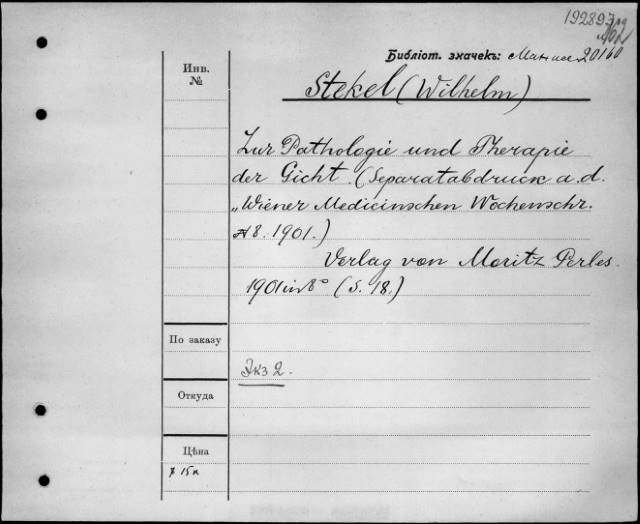 192893
Библіот. значекъ: 20160
Инв.
№
Stekel (Wilhelm)
Zur Pathologie und Therapie
der Gicht. (Separatabdruck a. d.
„Wiener Medicinschen Wochenschr.
№ 8. 1901.)
Verlag von Moritz Perles.
1901 in 8° (S. 18.)
По заказу
Экз 2.
Откуда
Цѣна
15к